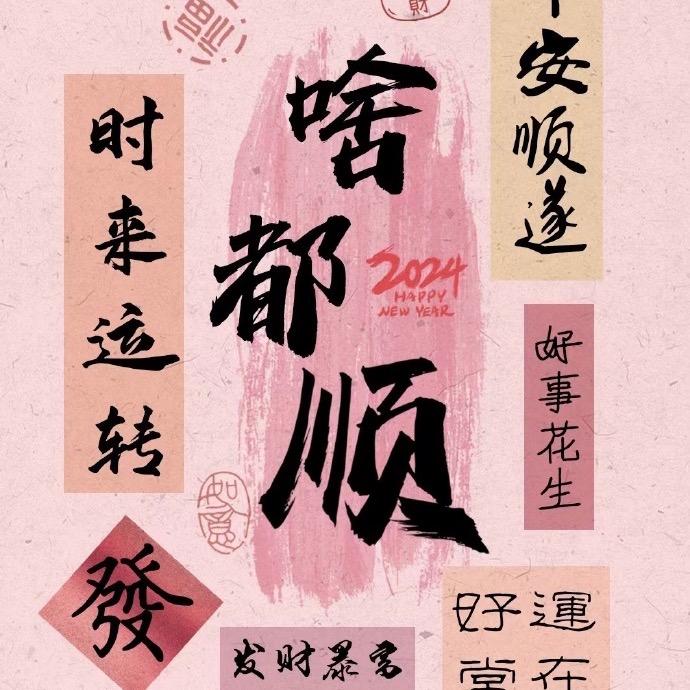 啥都顺
2024
HAPPY
NEW YEAR
时来运转
安顺遂
好事花生
如意
發
发财暴富
好運
在